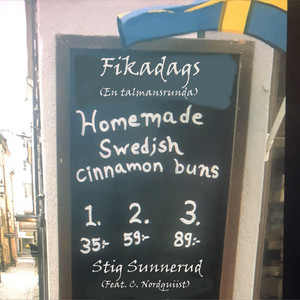 Fikadags
(En talmansrunda)
Homemade
Swedish
cinnamon buns
1. 2. 3.
35:- 59:- 89:-
Stig Sunnerud
(Feat. C. Nordquist)